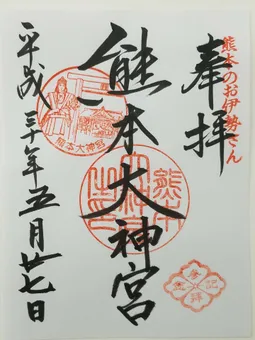 熊本のお伊勢さん
奉拝
熊本大神宮
平成三十年五月廿七日
熊本大神宮